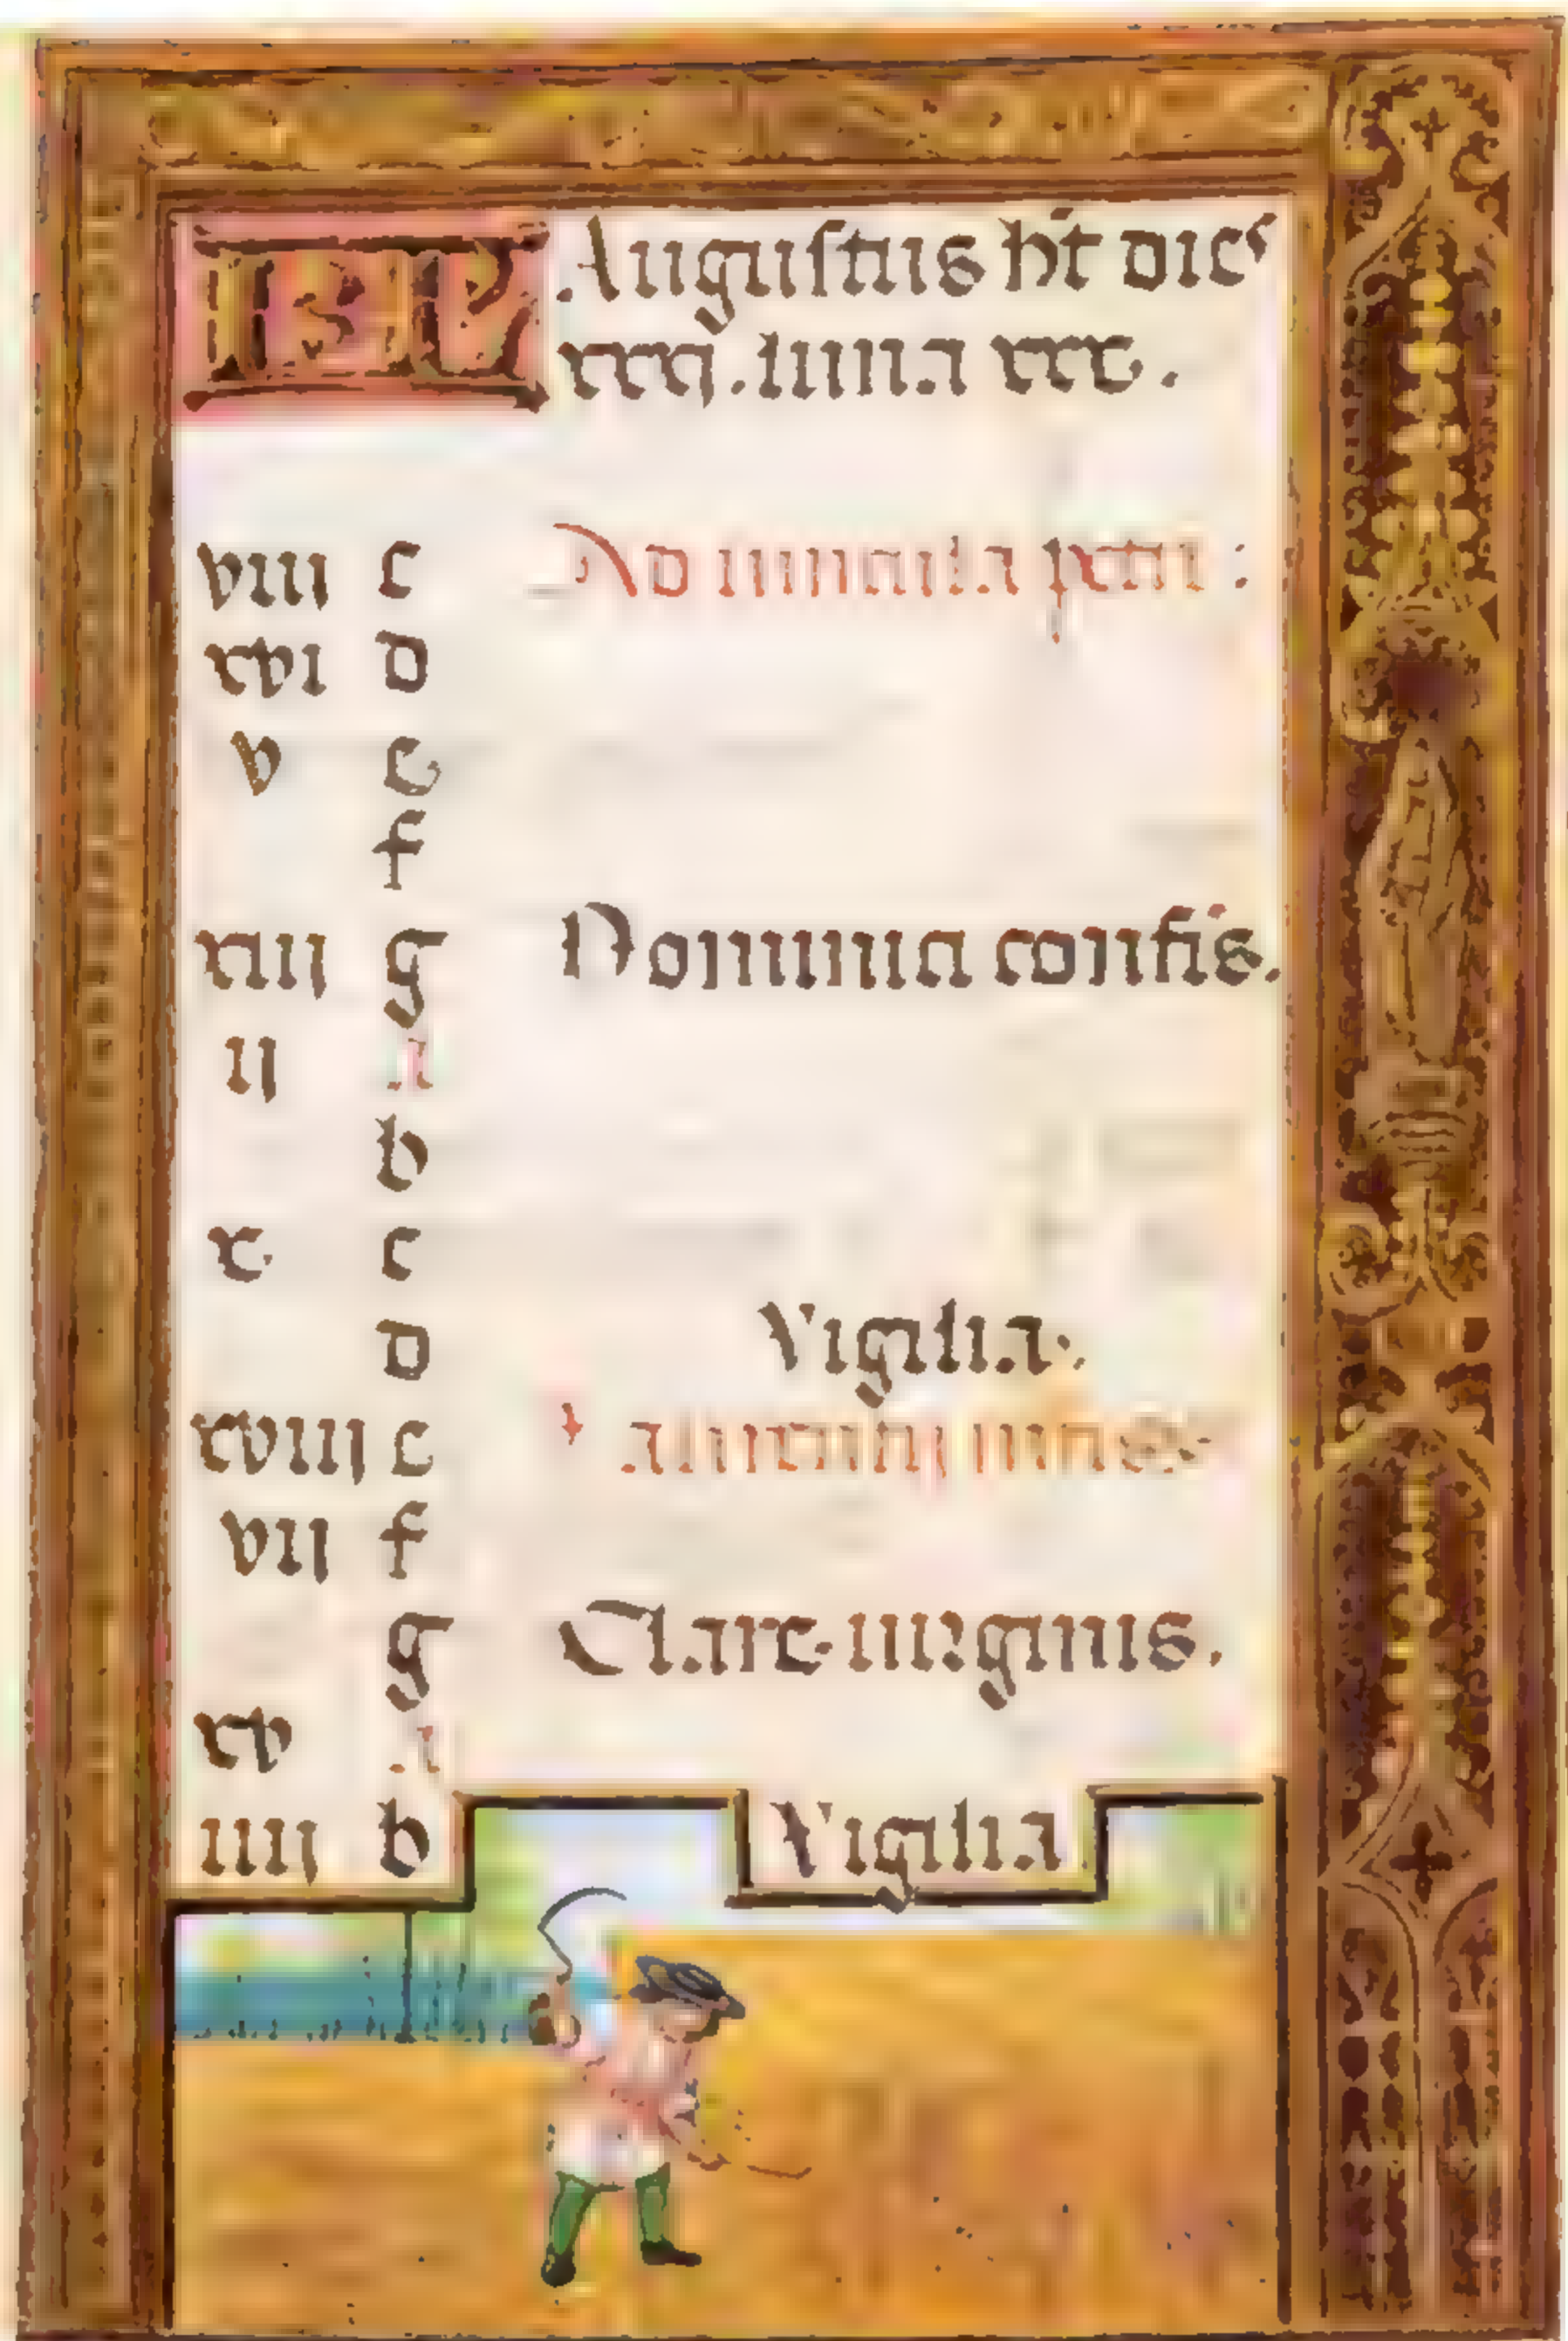 KL Augustus ht dies
xxxj. luna xxx.
viii c Ad uincula petri :
xvi d
v e
f
xiij g Dominici confis.
ij a
b
x c
d Vigilia.
xviij e laurentij
vij f
g Clare uirginis.
xv a
iiij b Vigilia